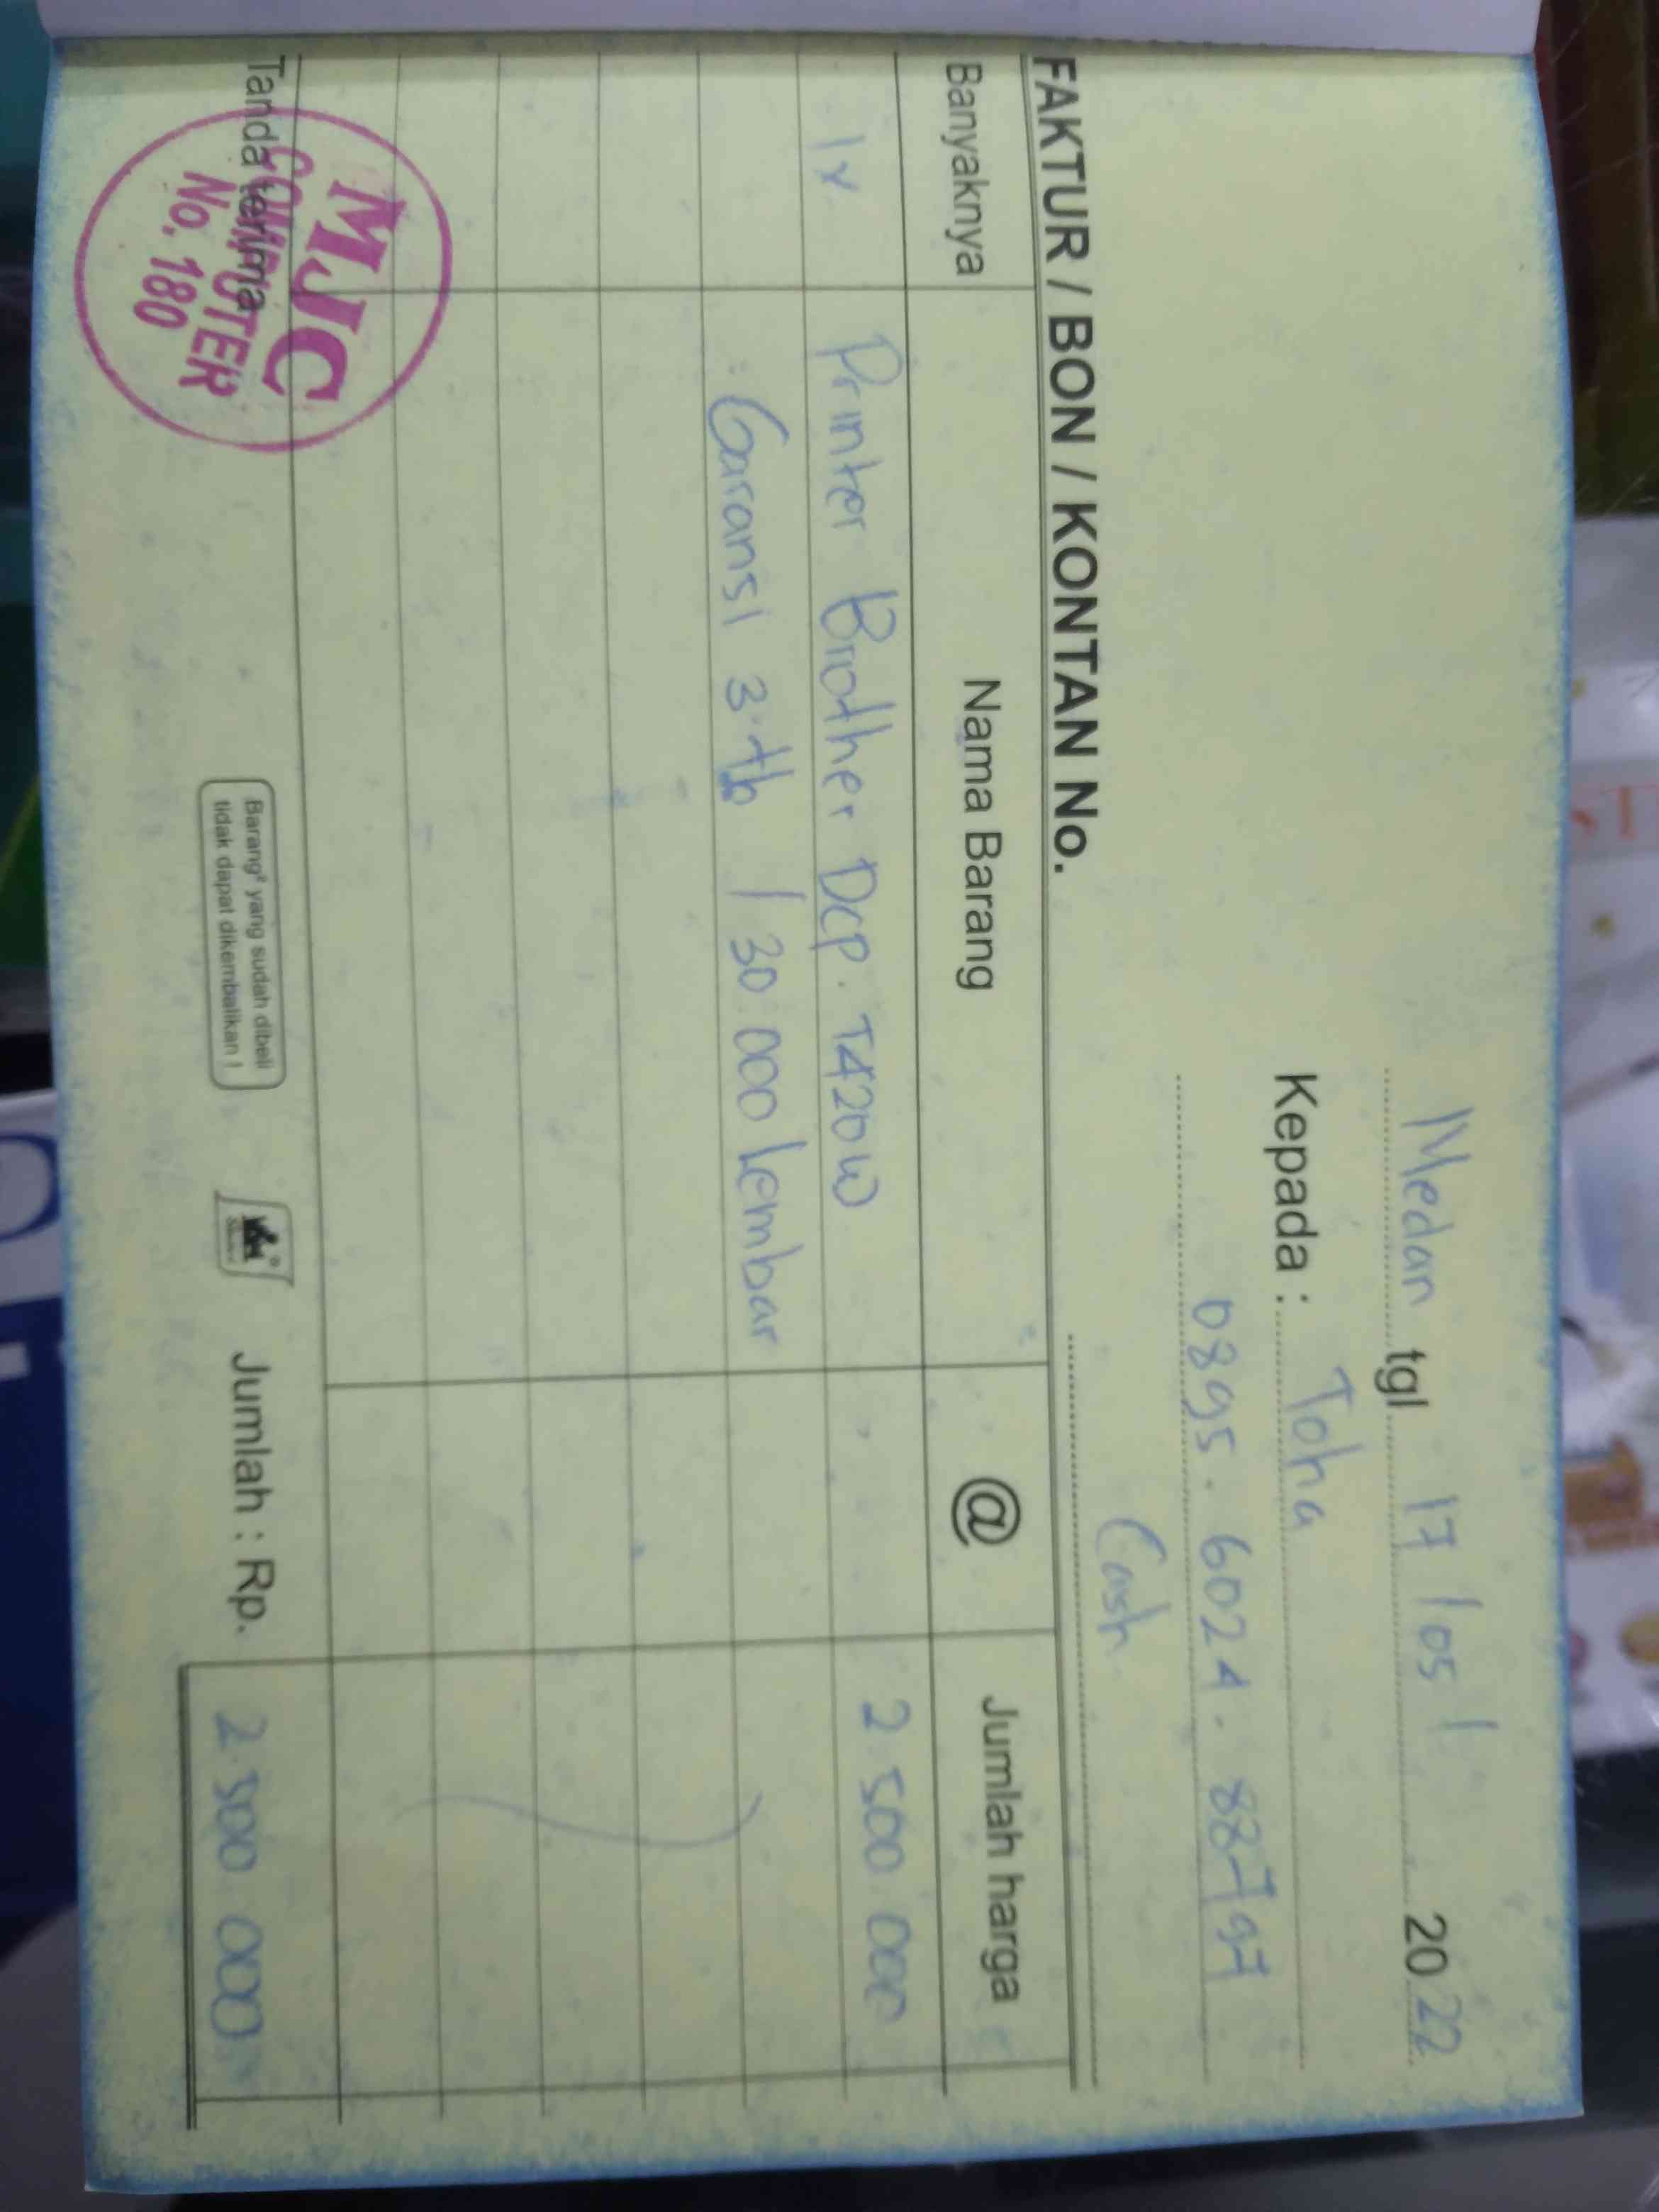 Medan tgl 17/05/ 2022
Kepada : Toha
0895. 6024. 8797
Cash
FAKTUR / BON / KONTAN No.
Banyaknya Nama Barang @ Jumlah harga
1x Printer Brother Dcp. T420w 2.500.000
Garansi 3 th / 30.000 lembar
Tanda terima
MJC
COMPUTER
No. 180
Barang² yang sudah dibeli
tidak dapat dikembalikan !
Jumlah : Rp. 2.500.000